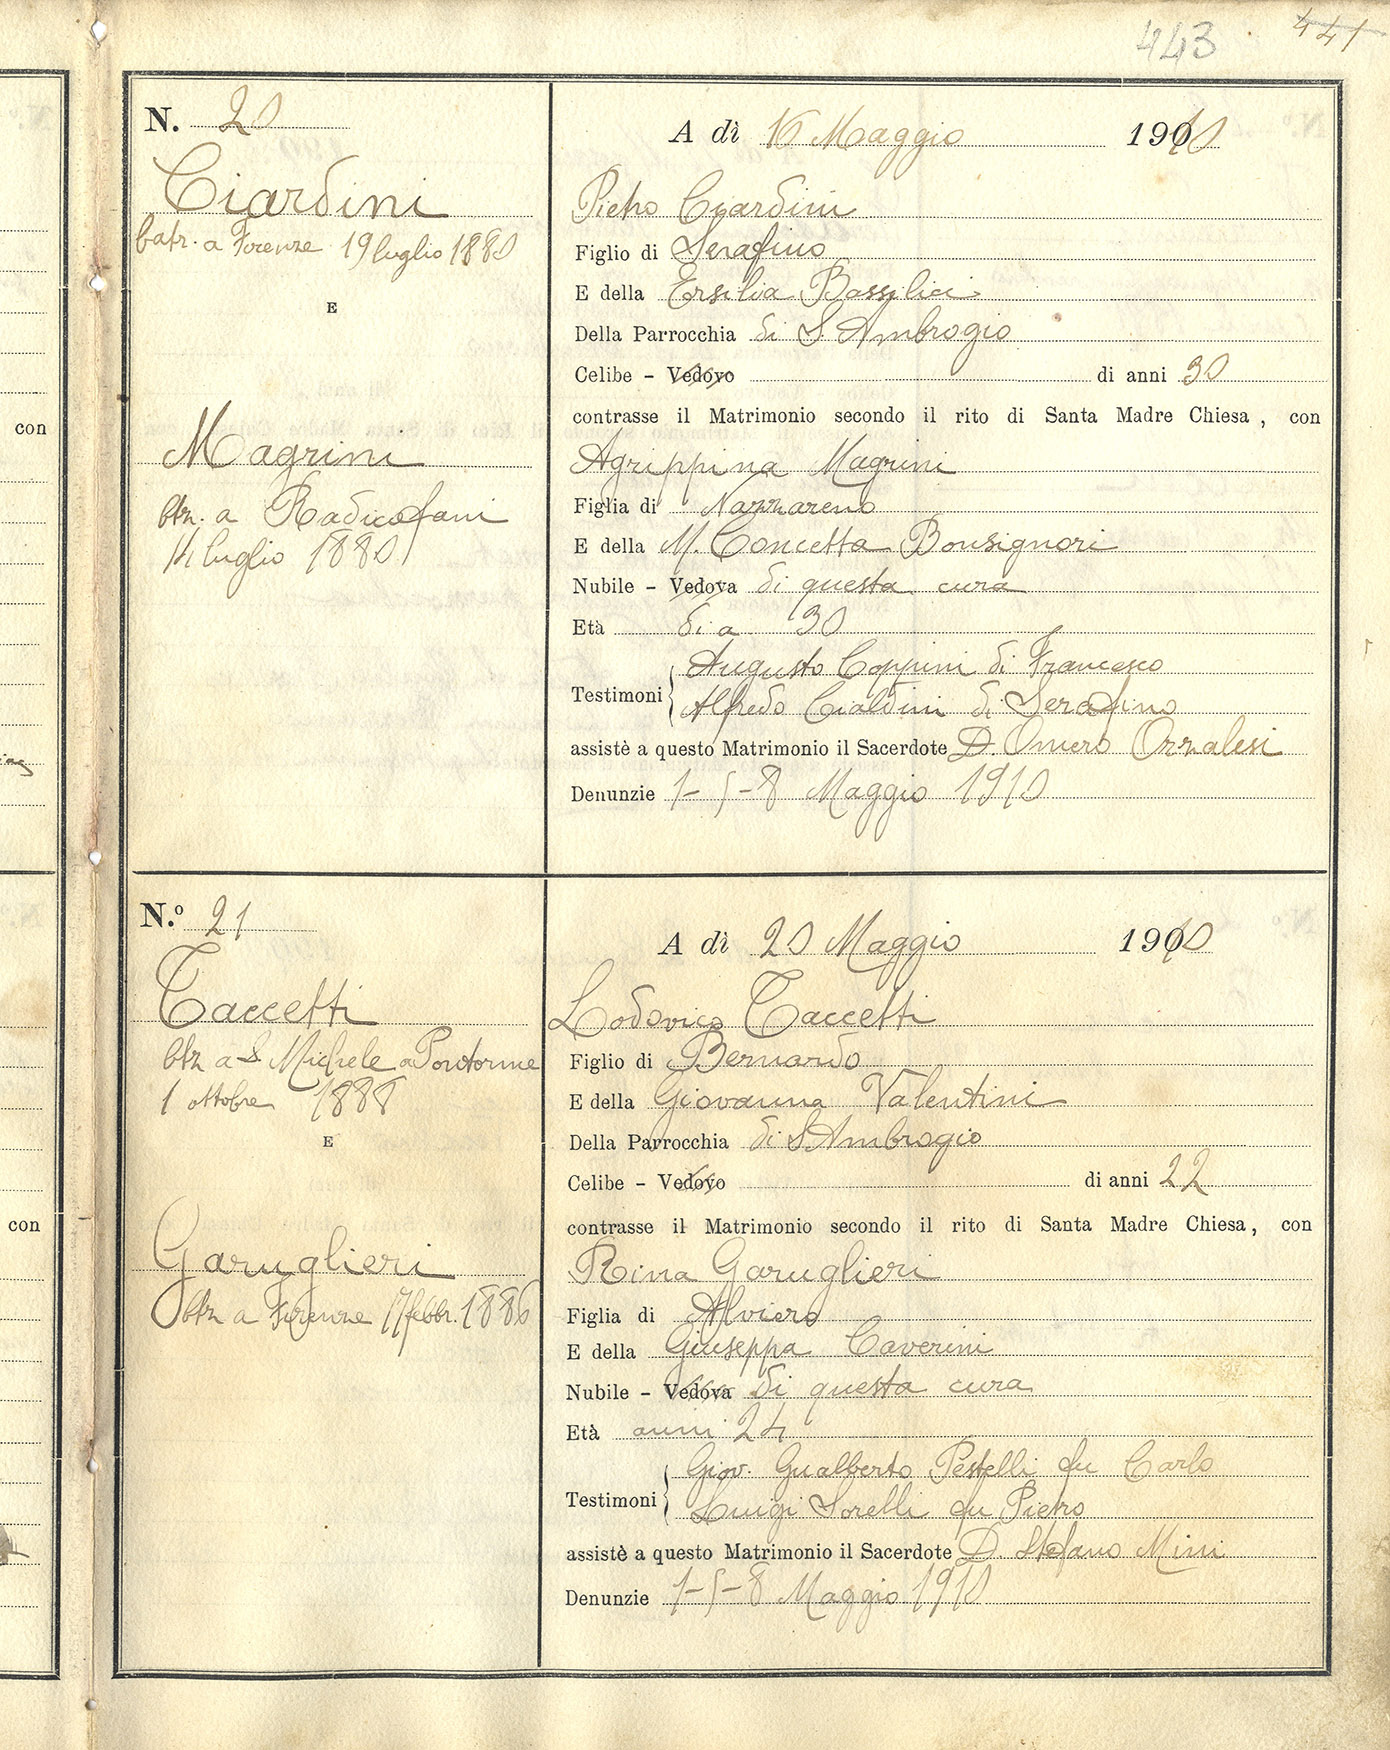 443 441
N. 20
Ciardini
batz. a Firenze 19 luglio 1880
E
Magrini
btz. a Radicofani
14 luglio 1880
A dì 16 Maggio 1910
Pietro Ciardini
Figlio di Serafino
E della Ersilia Bassilici
Della Parrocchia di S. Ambrogio
Celibe - Vedovo di anni 30
contrasse il Matrimonio secondo il rito di Santa Madre Chiesa, con
Agrippina Magrini
Figlia di Nazzareno
E della M. Concetta Bonsignori
Nubile - Vedova di questa cura
Età di a. 30
Testimoni { Augusto Coppini di Francesco
Alfredo Cialdini di Serafino
assistè a questo Matrimonio il Sacerdote D. Omero Orzalesi
Denunzie 1-5-8 Maggio 1910
N.º 21
Taccetti
btz a S Michele a Pontorme
1 ottobre 1888
E
Garuglieri
btz a Firenze 17 febbr. 1886
A dì 20 Maggio 1910
Lodovico Taccetti
Figlio di Bernardo
E della Giovanna Valentini
Della Parrocchia di S. Ambrogio
Celibe - Vedovo di anni 22
contrasse il Matrimonio secondo il rito di Santa Madre Chiesa, con
Rina Garuglieri
Figlia di Alviero
E della Giuseppa Caverini
Nubile - Vedova di questa cura
Età anni 24
Testimoni { Giov. Gualberto Pestelli fu Carlo
Luigi Sorelli fu Pietro
assistè a questo Matrimonio il Sacerdote D. Stefano Mini
Denunzie 1-5-8 Maggio 1910
con
con